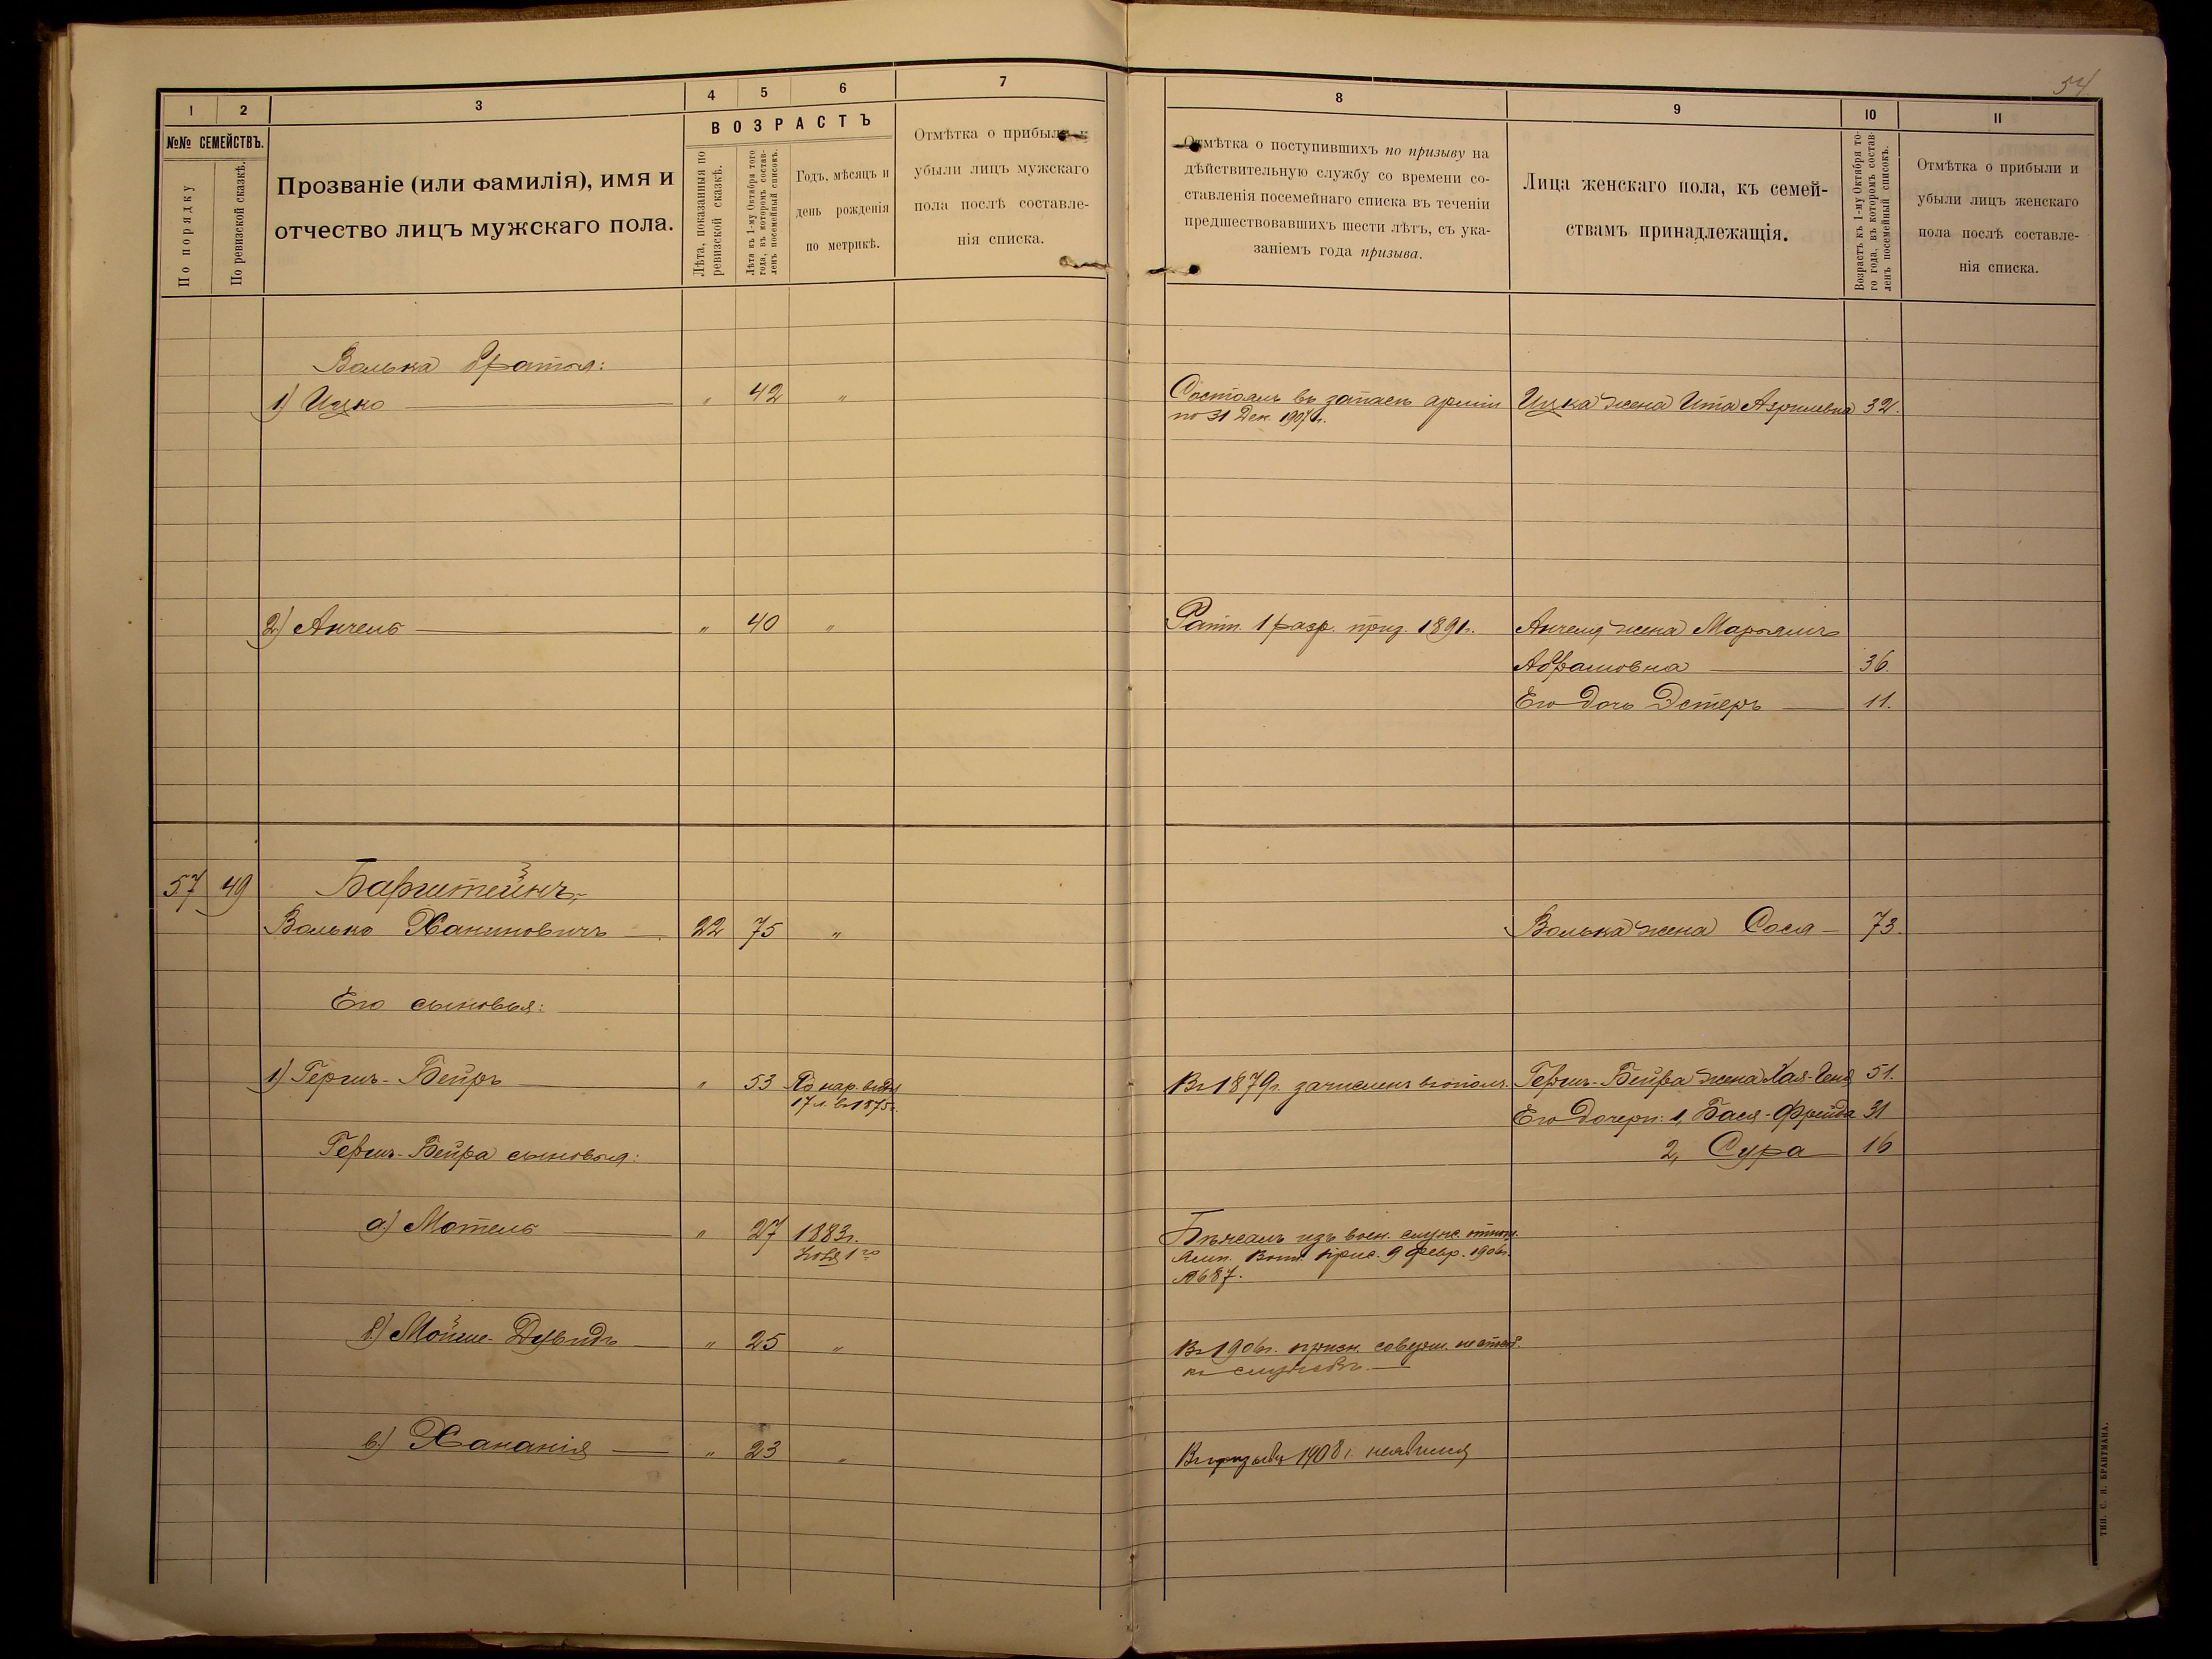 54
1 2 3 4 5 6 7
№№ СЕМЕЙСТВЪ.
По порядку
По ревизской сказкѣ.
Прозваніе (или фамилія), имя и
отчество лицъ мужскаго пола.
ВОЗРАСТЪ
Лѣта, показанныя по
ревизской сказкѣ.
Лѣта къ 1-му Октября того
года, въ которомъ состав-
ленъ посемейный списокъ.
Годъ, мѣсяцъ и
день рожденія
по метрикѣ.
Отмѣтка о прибыли и
убыли лицъ мужскаго
пола послѣ составле-
нія списка.
Волька братья:
1) Ицко — „ 42 „
2) Анчель — „ 40 „
57 49 Барштейнъ,
Волько Ханиновичъ — 22 75 „
Его сыновья:
1) Гершъ-Бейръ — „ 53 По нар.
17 л. въ 1875 г.
Гершъ-Бейра сыновья:
а) Мотель — „ 27 1883 г.
1го
б) Мойше-Дувидъ — „ 25 „
в) Хананія — „ 23 „
8 9 10 11
Отмѣтка о поступившихъ по призыву на
дѣйствительную службу со времени со-
ставленія посемейнаго списка въ теченіи
предшествовавшихъ шести лѣтъ, съ ука-
заніемъ года призыва.
Лица женскаго пола, къ семей-
ствамъ принадлежащія.
Возрастъ къ 1-му Октября то-
го года, въ которомъ состав-
ленъ посемейный списокъ.
Отмѣтка о прибыли и
убыли лицъ женскаго
пола послѣ составле-
нія списка.
Состоялъ въ запасѣ арміи Ицка жена Ита Азрилевна 32.
по 31 Дек.
Ратн. 1 разр. приз. 1891 г. Анчеля жена Марьямъ
Абрамовна — 36.
Его дочь Эстеръ — 11.
Волька жена Сося — 73.
Въ 1879 г. зачисленъ въ ополч. Гершъ-Бейра жена Хая-Геня 51.
Его дочери: 1, Бася-Фрейда 31
2, Сура — 16
Бѣжалъ изъ воен. служ.
9 февр. 1906 г.
№687.
Въ 1906 г. призн. соверш. неспособ.
къ службѣ. —
Въ призывъ 1908 г. неявился
ТИП. С. П. БРАНТМАНА.